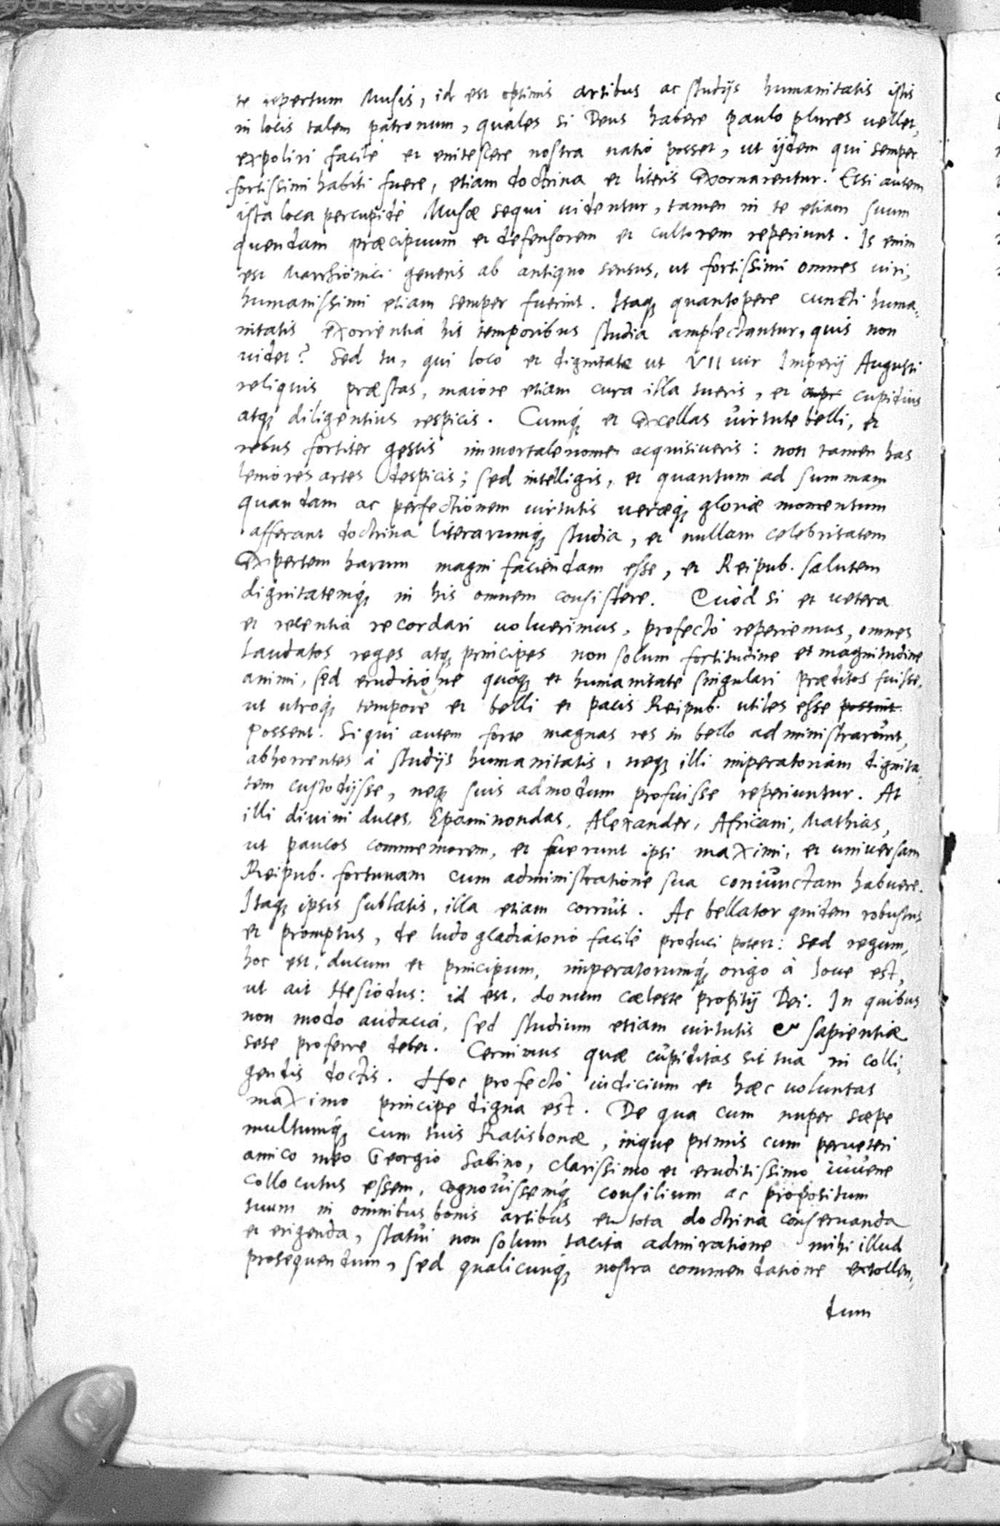 te repertum Musis, id est optimis artibus ac studijs humanitatis istis
in locis talem patronum, quales si Deus habere paulo plures uellet,
expoliri facile et enitescere nostra natio posset, ut ijdem qui semper
fortissimi habiti fuere, etiam doctrina et literis exornarentur. Etsi autem
ista loca percupidè Musae sequi uidentur, tamen in te etiam suum
quendam praecipuum et defensorem et cultorem reperiunt. Is enim
est Marchionici generis ab antiquo sensus, ut fortissimi omnes uiri,
humanissimi etiam semper fuerint. Itaq; quantopere cuncti huma,
nitatis exorientia his temporibus studia amplectantur, quis non
uidet? Sed tu, qui loco et dignitate ut VII uir Imperij Augusti
reliquis praestas, maiore etiam cura illa tueris, et cupidius
atq; diligentius respicis. Cumq; et excellas uirtute belli, et
rebus fortiter gestis immortale nomen acquisiueris: non tamen has
leniores artes despicis; sed intelligis, et quantum ad summam
quandam ac perfectionem uirtutis ueraeq; gloriae momentum
afferant doctrina literarumq; studia, et nullam celebritatem
expertem harum magni faciendam esse, et Reipub. salutem
dignitatemq; in his omnem consistere. Quod si et uetera
et recentia recordari uoluerimus, profectò reperiemus, omnes
laudatos reges atq; principes non solum fortitudine et magnitudine
animi, sed eruditione quoq; et humanitate singulari praeditos fuisse,
ut utroq; tempore et belli et pacis Reipub. utiles esse possint
possent. Si qui autem forte magnas res in bello administrarunt,
abhorrentes à studijs humanitatis, neq; illi imperatoriam dignita,
tem custodijsse, neq; suis admodum profuisse reperiuntur. At
illi diuini duces, Epaminondas, Alexander, Africani, Mathias,
ut paucos commemorem, et fuerunt ipsi maximi, et uniuersam
Reipub. fortunam cum administratione sua coniunctam habuere.
Itaq; ipsis sublatis, illa etiam corruit. Ac bellator quidem robustus
et promptus, de ludo gladiatorio facilè produci potest: sed regum,
hoc est, ducum et principum, imperatorumq; origo à Ioue est,
ut ait Hesiodus: id est, donum caeleste propitij Dei. In quibus
non modo audacia, sed studium etiam uirtutis et sapientiae
sese proferre debet. Cernimus quae cupiditas sit tua in colli,
gendis doctis. Hoc profectò iudicium et haec uoluntas
maximo principe digna est. De qua cum nuper saepe
multumq; cum tuis Ratisbonae, inque primis cum perueteri
amico meo Georgio Sabino, clarissimo et eruditissimo iuuene
collocutus essem, cognouissemq; consilium ac propositum
tuum in omnibus bonis artibus et tota doctrina conseruanda
et erigenda, statui non solum tacita admiratione mihi illud
prosequendum, sed qualicunq; nostra commendatione extollen,
dum